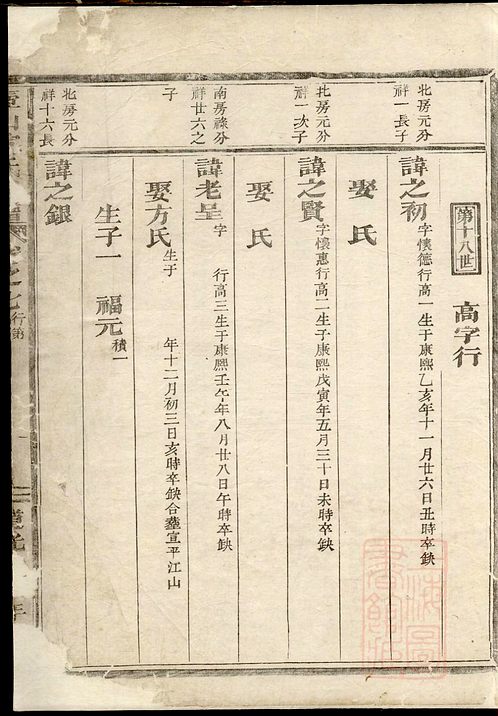 第十八世
高字行
北房元分
祥一長子
諱之初字懷德行高一生于康熙乙亥年十一月廿六日丑時卒缺
娶 氏
北房元分
祥一次子
諱之賢字懷惠行高二生于康熙戊寅年五月三十日未時卒缺
娶 氏
南房祿分
祥廿六之
子
諱老呈字 行高三生于康熙壬午年八月廿八日午時卒缺
娶方氏生于 年十二月初三日亥時卒缺合塟宣平江山
北房元分
祥十六長
諱之銀
生子一 福元積一
行第